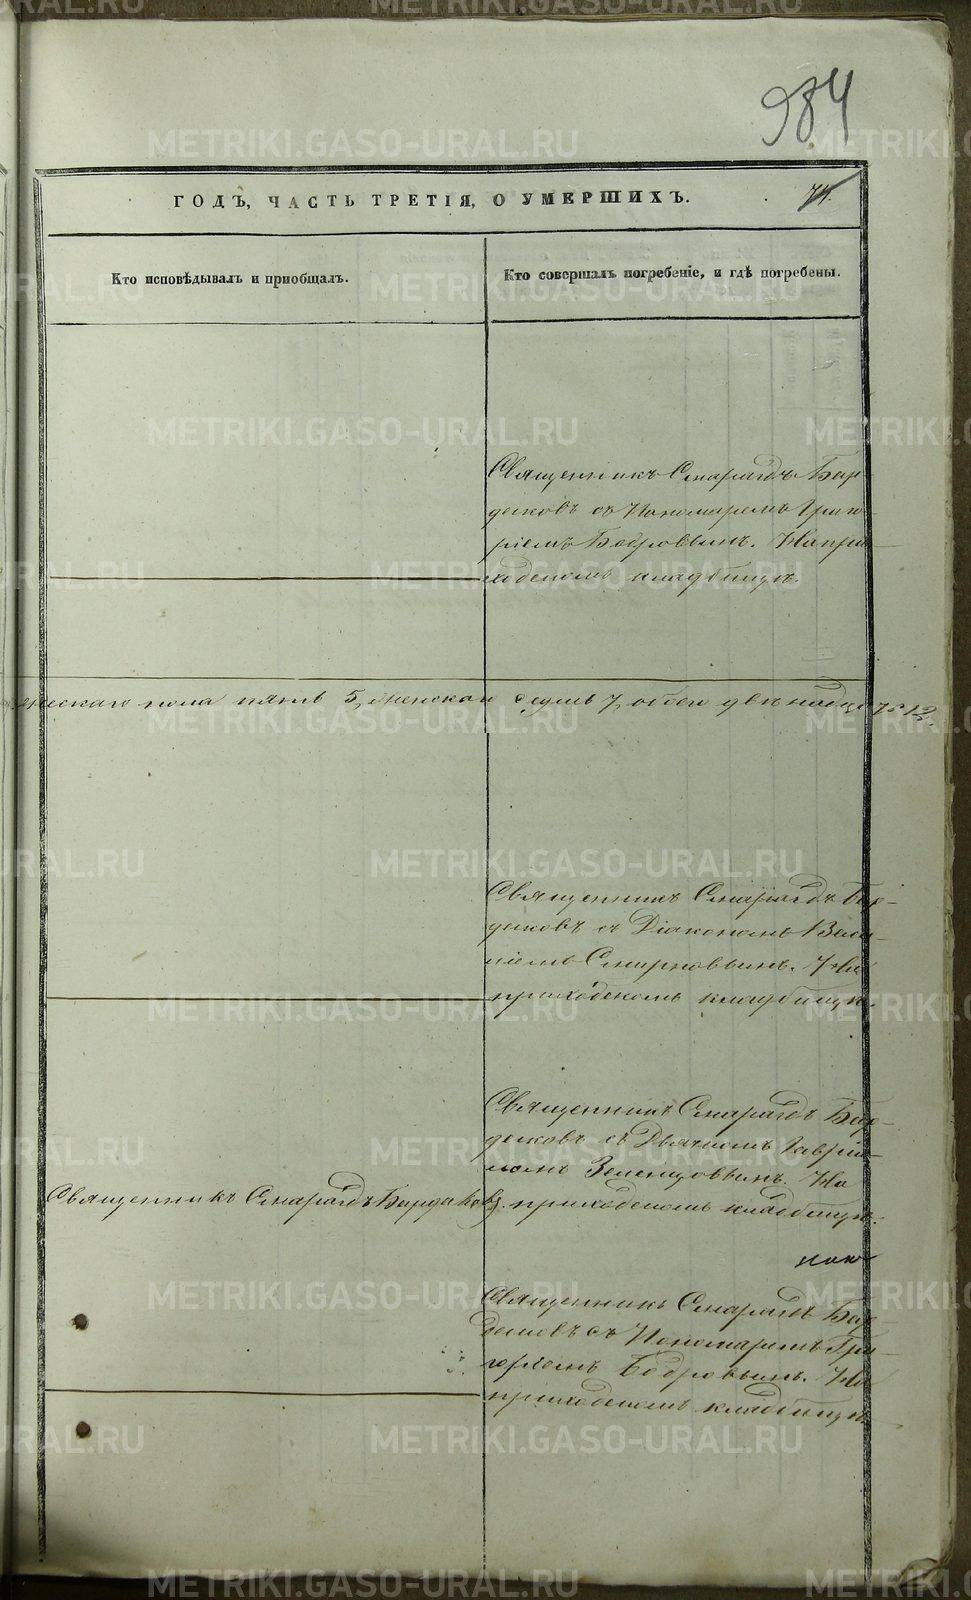 984
ГОДЪ, ЧАСТЬ ТРЕТІЯ, О УМЕРШИХЪ.
Кто исповѣдывалъ и пріобщалъ.
Кто совершалъ погребеніе, и гдѣ погребены.
Священникъ Смарагдъ Бар
даковъ съ Пономаремъ Григо
ріемъ Бобровымъ. На при
ходскомъ кладбищѣ.
ческаго пола пять 5, женскаго седмь 7, обоего двѣнадцать 12.
Священникъ Смарагдъ Бар-
даковъ съ Діакономъ
Смирновымъ. На
приходскомъ кладбищѣ.
Священникъ Смарагдъ Бар-
даковъ съ Дьячкомъ Гавріи-
ломъ Зеленцовымъ. На
Священникъ Смарагдъ Бардаковъ.
приходскомъ кладбищѣ.
Священникъ Смарагдъ Бар-
даковъ съ Пономаремъ Гри-
горіемъ Бобровымъ. На
приходскомъ кладбищѣ.
METRIKI.GASO-URAL.RU